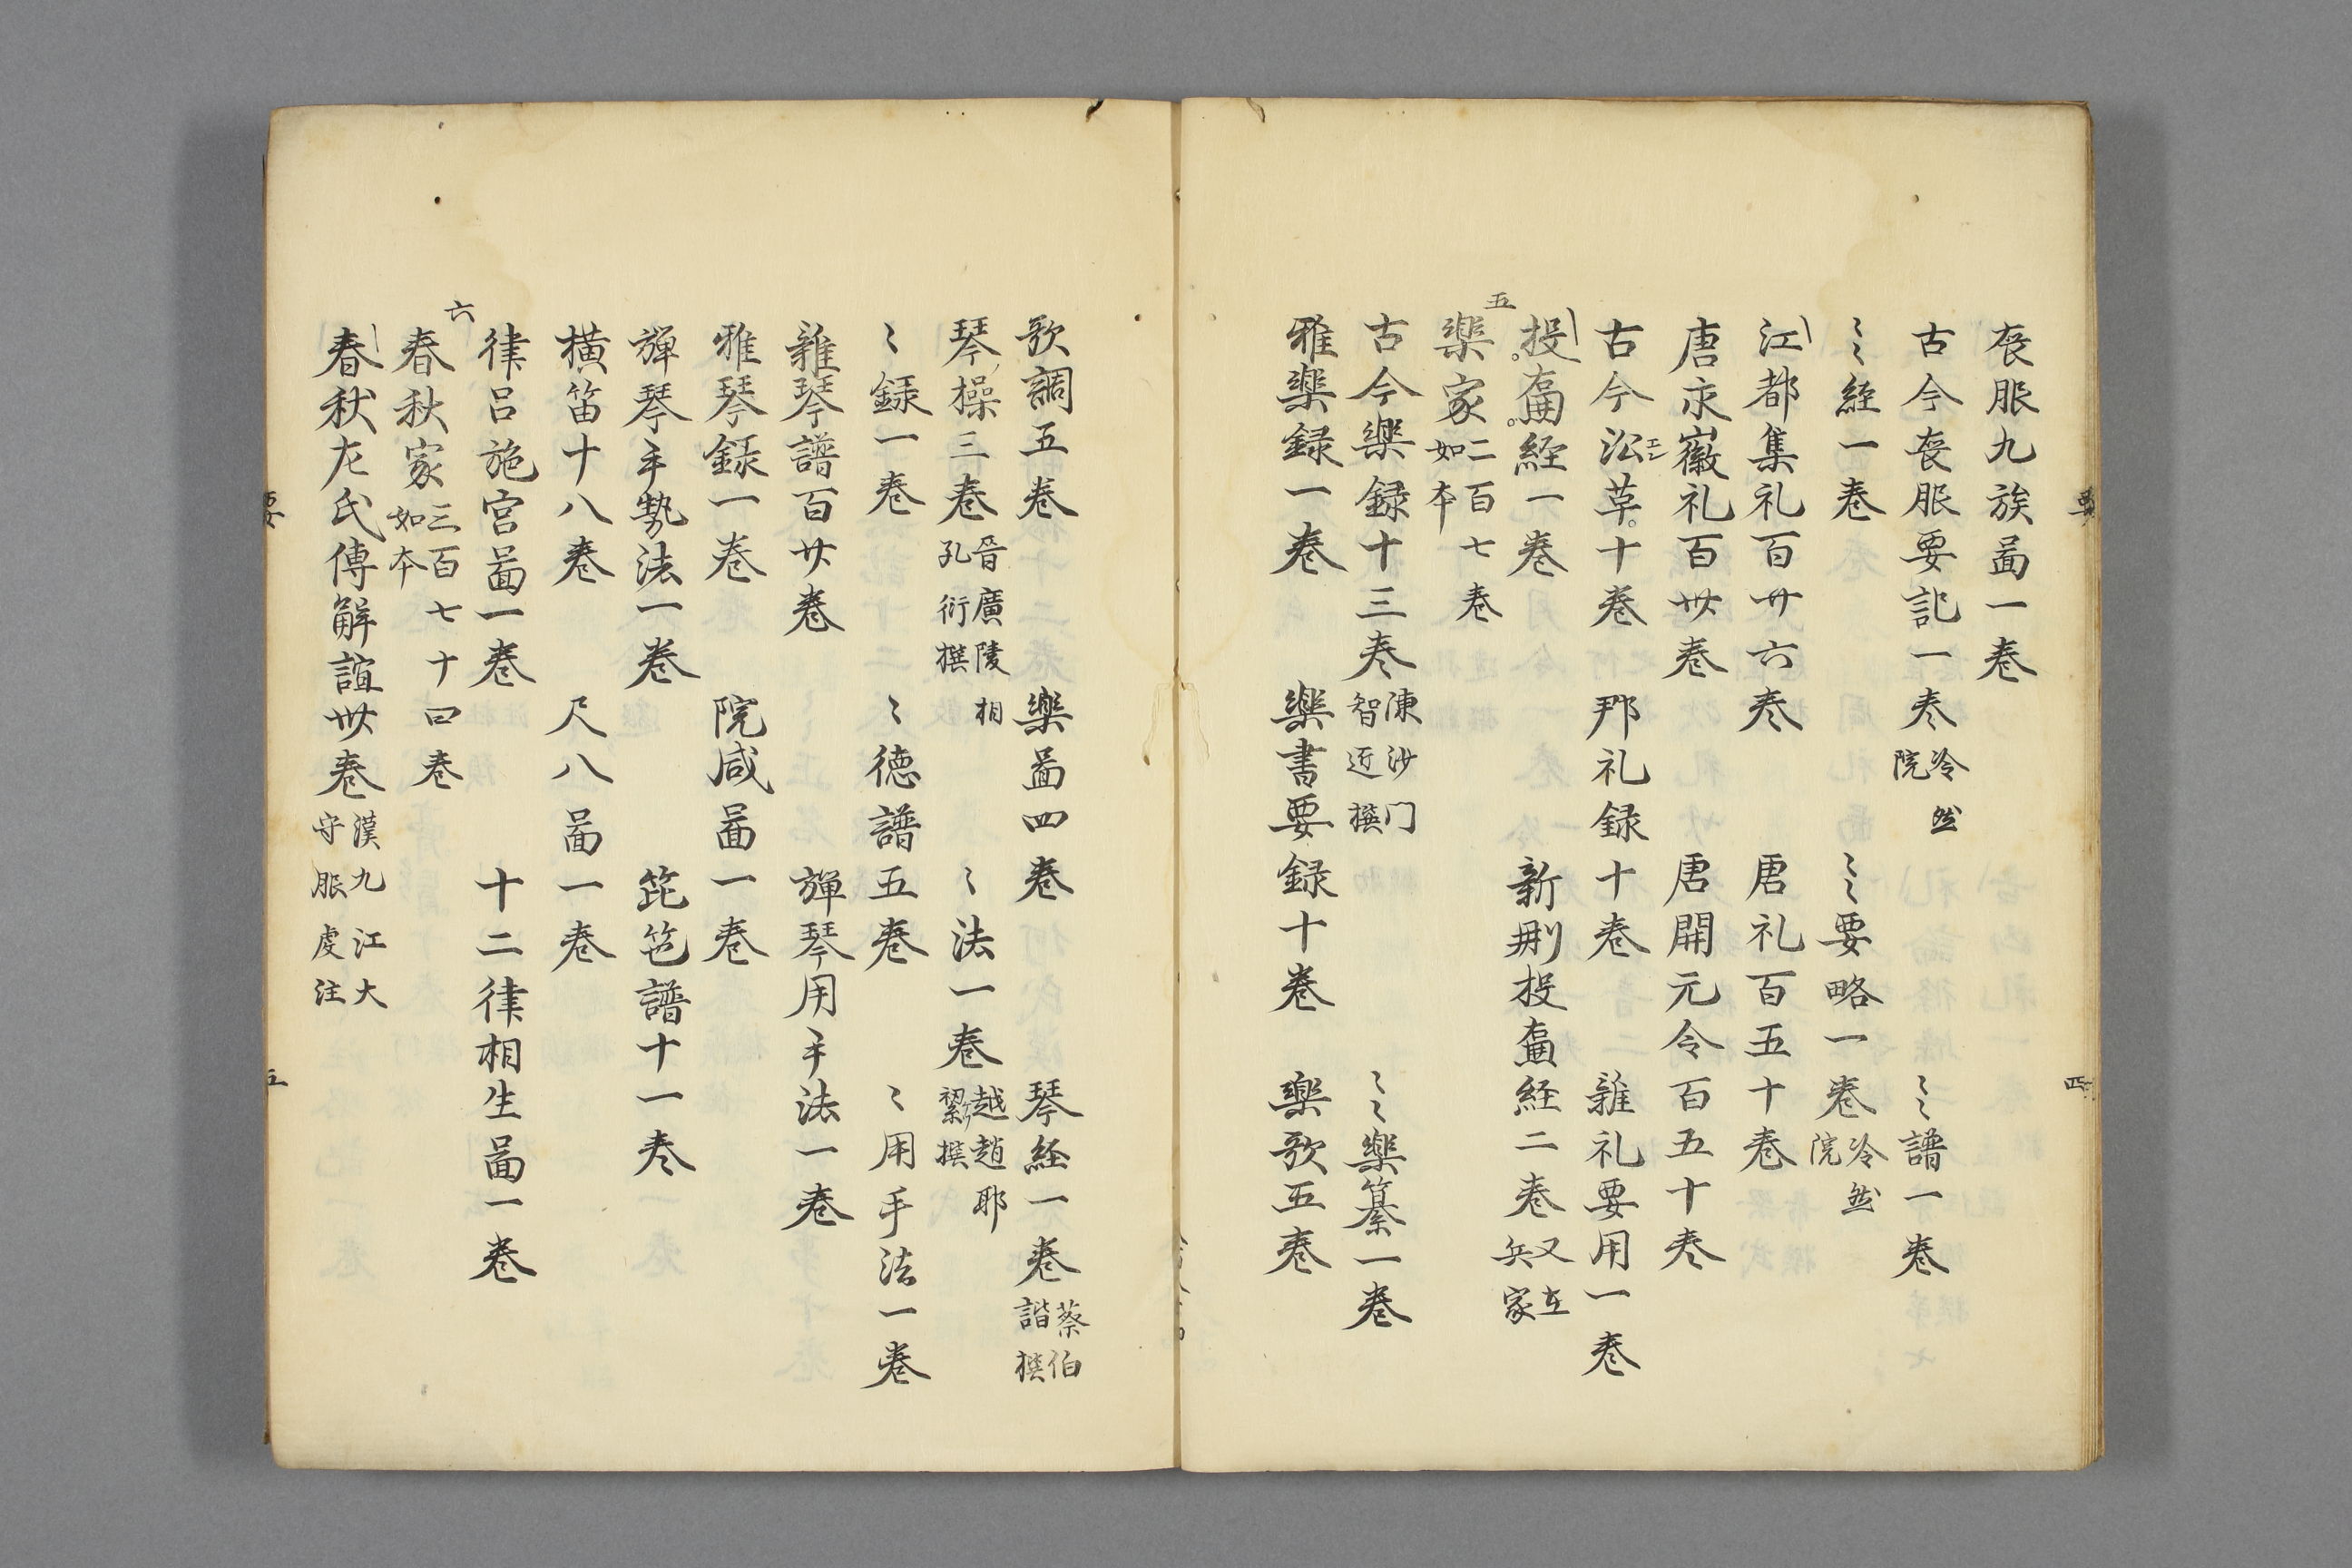 喪服九族啚一巻
古今喪服要記一巻 冷然院 〻〻譜一巻
〻〻経一巻 〻〻要略一巻 冷然院
江都集礼百廿六巻 唐礼百五十巻
唐永徽礼百卅巻 唐開元令百五十巻
古今沿革十巻 郉礼録十巻 雜礼要用一巻
投壷経一巻 新刪投壷経二巻 又在兵家
五 樂家 二百七巻如本
古今樂録十三巻 陳沙门智匠撰 〻〻樂纂一巻
雅樂録一巻 樂書要録十巻 樂歌五巻
歌調五巻 樂啚四巻 琴経一巻 蔡伯諧撰
琴操三巻 晉廣陵相孔衍撰 〻法一巻 越趙耶撰
〻録一巻 〻徳譜五巻 〻用手法一巻
雜琴譜百廿巻 彈琴用手法一巻
雅琴録一巻 院咸啚一巻
彈琴手勢法一巻 琵琶譜十一巻
橫笛十八巻 尺八啚一巻
律呂施宮啚一巻 十二律相生啚一巻
六 春秋家 三百七十四巻如本
春秋左氏傳解誼卅巻 漢九江大守服虔注